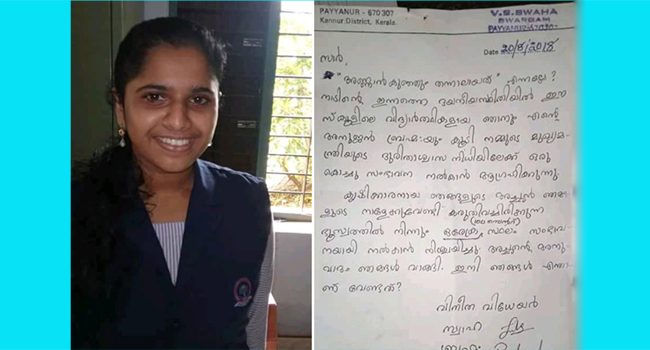 PAYYANUR - 670 307
Kannur District, Kerala.
V.S. SWAHA
SWARGAM
PAYYANUR
Date 20/8/2018
സർ,
"അണ്ണാൻകുഞ്ഞും തന്നാലായത്" എന്നല്ലേ?
നാടിന്റെ ഇന്നത്തെ ദയനീയസ്ഥിതിയിൽ ഈ
സ്കൂളിലെ വിദ്യാർത്ഥികളായ ഞാനും എന്റെ
അനുജൻ ബ്രഹ്മയും കൂടി നമ്മുടെ മുഖ്യമ-
ന്ത്രിയുടെ ദുരിതാശ്വാസ നിധിയിലേക്ക് ഒരു
കൊച്ചു സംഭാവന നൽകാൻ ആഗ്രഹിക്കുന്നു.
കൃഷിക്കാരനായ ഞങ്ങളുടെ അച്ഛൻ ഞങ്ങ-
ളുടെ നാളേക്കുവേണ്ടി കരുതിവച്ചിരിക്കുന്ന
ഭൂസ്വത്തിൽ നിന്നും ഒരേക്കർ സ്ഥലം സംഭാവ-
നയായി നൽകാൻ നിശ്ചയിച്ചു. അച്ഛന്റെ അനു-
വാദം ഞങ്ങൾ വാങ്ങി. ഇനി ഞങ്ങൾ എന്താ-
ണ് വേണ്ടത്?
വിനീത വിധേയർ
സ്വാഹ
ബ്രഹ്മ